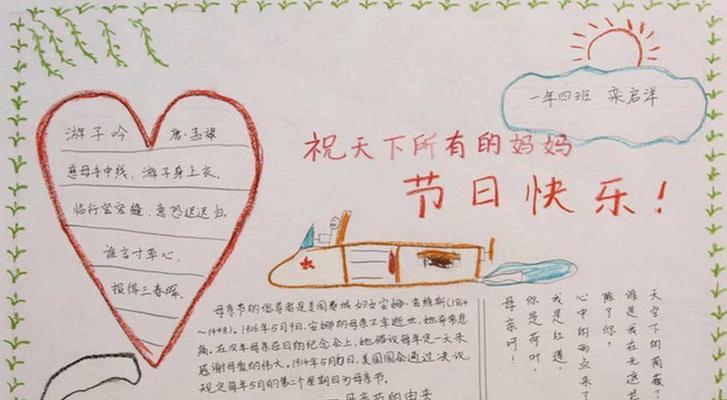 游子吟 唐·孟郊
慈母手中线,游子身上衣。
临行密密缝,意恐迟迟归。
谁言寸草心,
报得三春晖。
一年四班 栾启洋
祝天下所有的妈妈
节日快乐!
母亲节的倡导者是美国费城妇女安娜·吉维斯(1864
~1948)。1906年5月9日,安娜的母亲不幸逝世,她非常悲
痛。在次年母亲忌日的纪念会上,她倡议每年定一天来
感谢母爱的伟大。1914年5月日,美国国会通过决议
规定每年5月的第二个星期日为母亲节。
——母亲节的由来
母亲啊!
你是荷叶,
我是红莲,
心中的雨点来了
除了你,
谁是我在无遮
天空下的荫蔽?